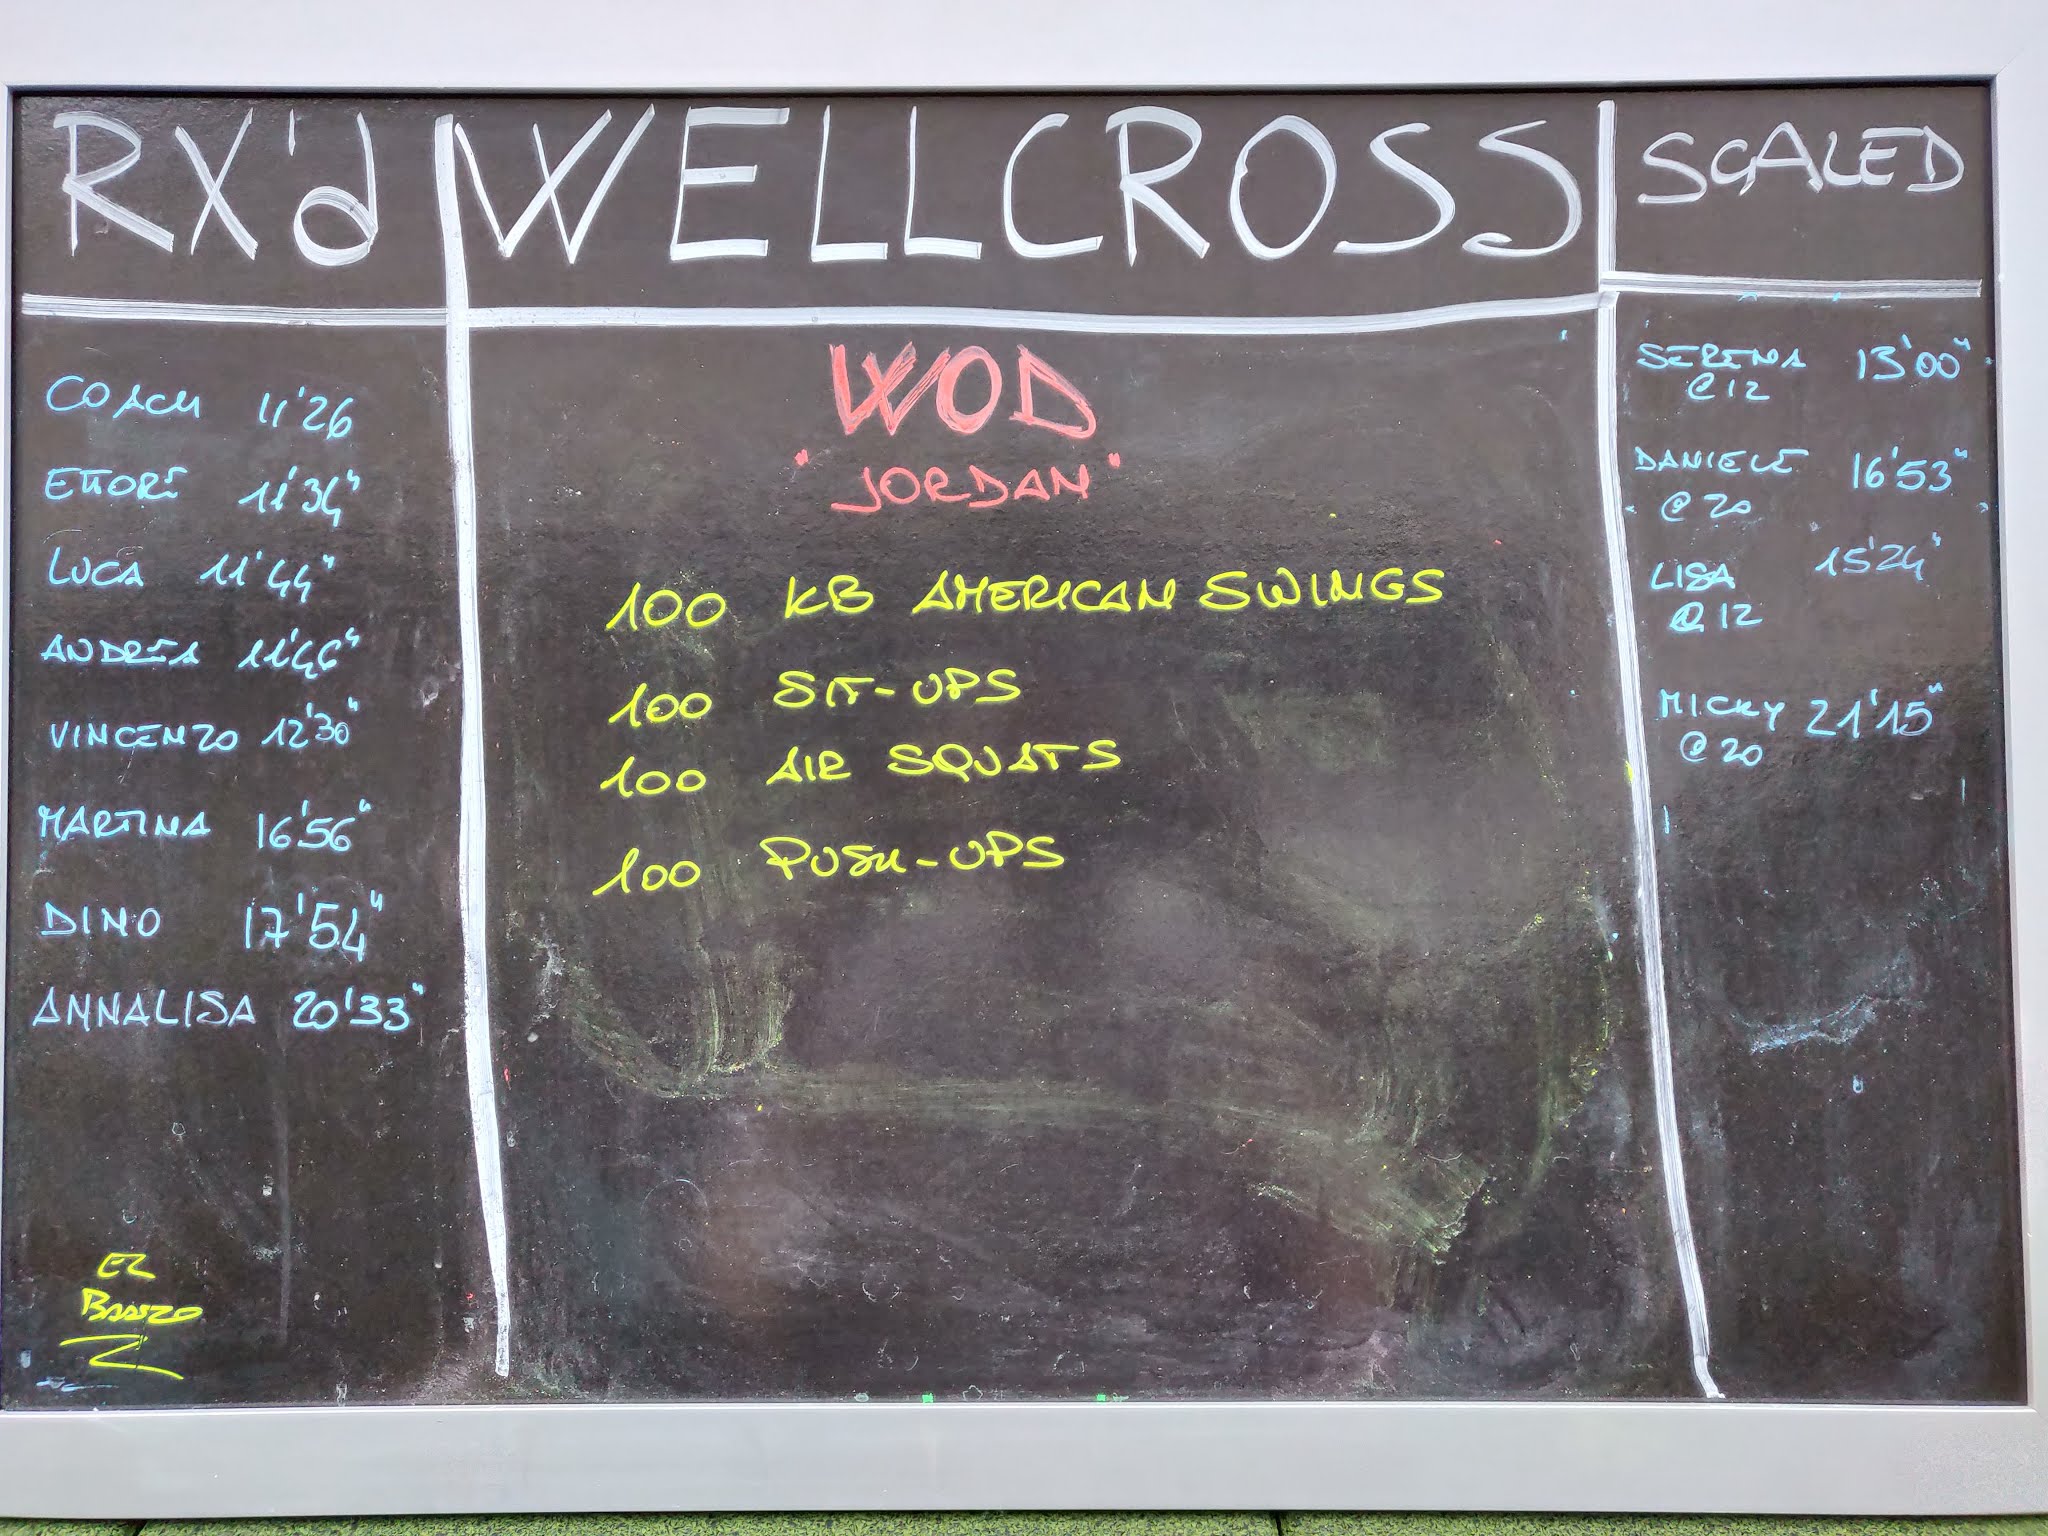 RX'd
COACH 11'26
ETTORE 11'34"
LUCA 11'44"
ANDREA 11'46"
VINCENZO 12'30"
MARTINA 16'56"
DINO 17'54"
ANNALISA 20'33"
WELLCROSS
WOD
"JORDAN"
100 KB AMERICAN SWINGS
100 SIT-UPS
100 AIR SQUATS
100 PUSH-UPS
SCALED
SERENA 13'00"
@12
DANIELE 16'53"
@20
LISA 15'24"
@12
MICKY 21'15"
@20